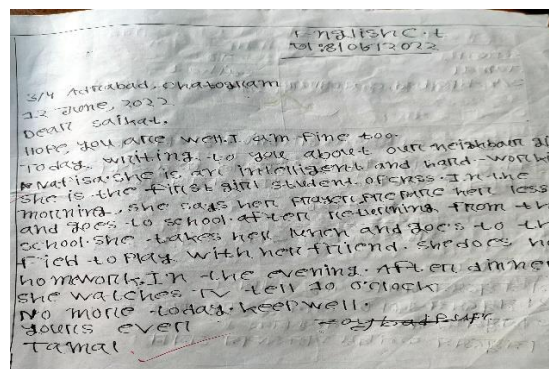 English C.t
৮/06/2022
3/4 Asadabad, Chatogram
12 June, 2022
Dear Saikat.
Hope you are well.I am fine too.
Today, writing to you about our neighbour
Nafisa.She is an intelligent and hard-work
She is the first girl student of class. In the
morning, she says her prayer, prepare her less
and goes to school.after returning from th
school.she takes her lunch and goes to th
fied to play with her friend. she does h
homework.In the evening. After dinner
she watches TV tell 10 o'clock
No more today.keep well.
yours ever
Tamal